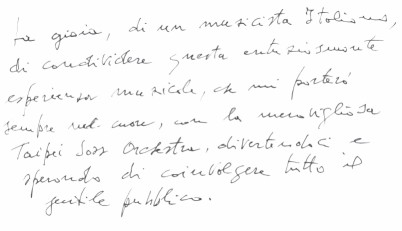 La gioia, di un musicista Italiano,
di condividere questa entusiasmante
esperienza musicale, che mi porterò
sempre nel cuore, con la meravigliosa
Taipei Jazz Orchestra, divertendoci e
sperando di coinvolgere tutto il
gentile pubblico.